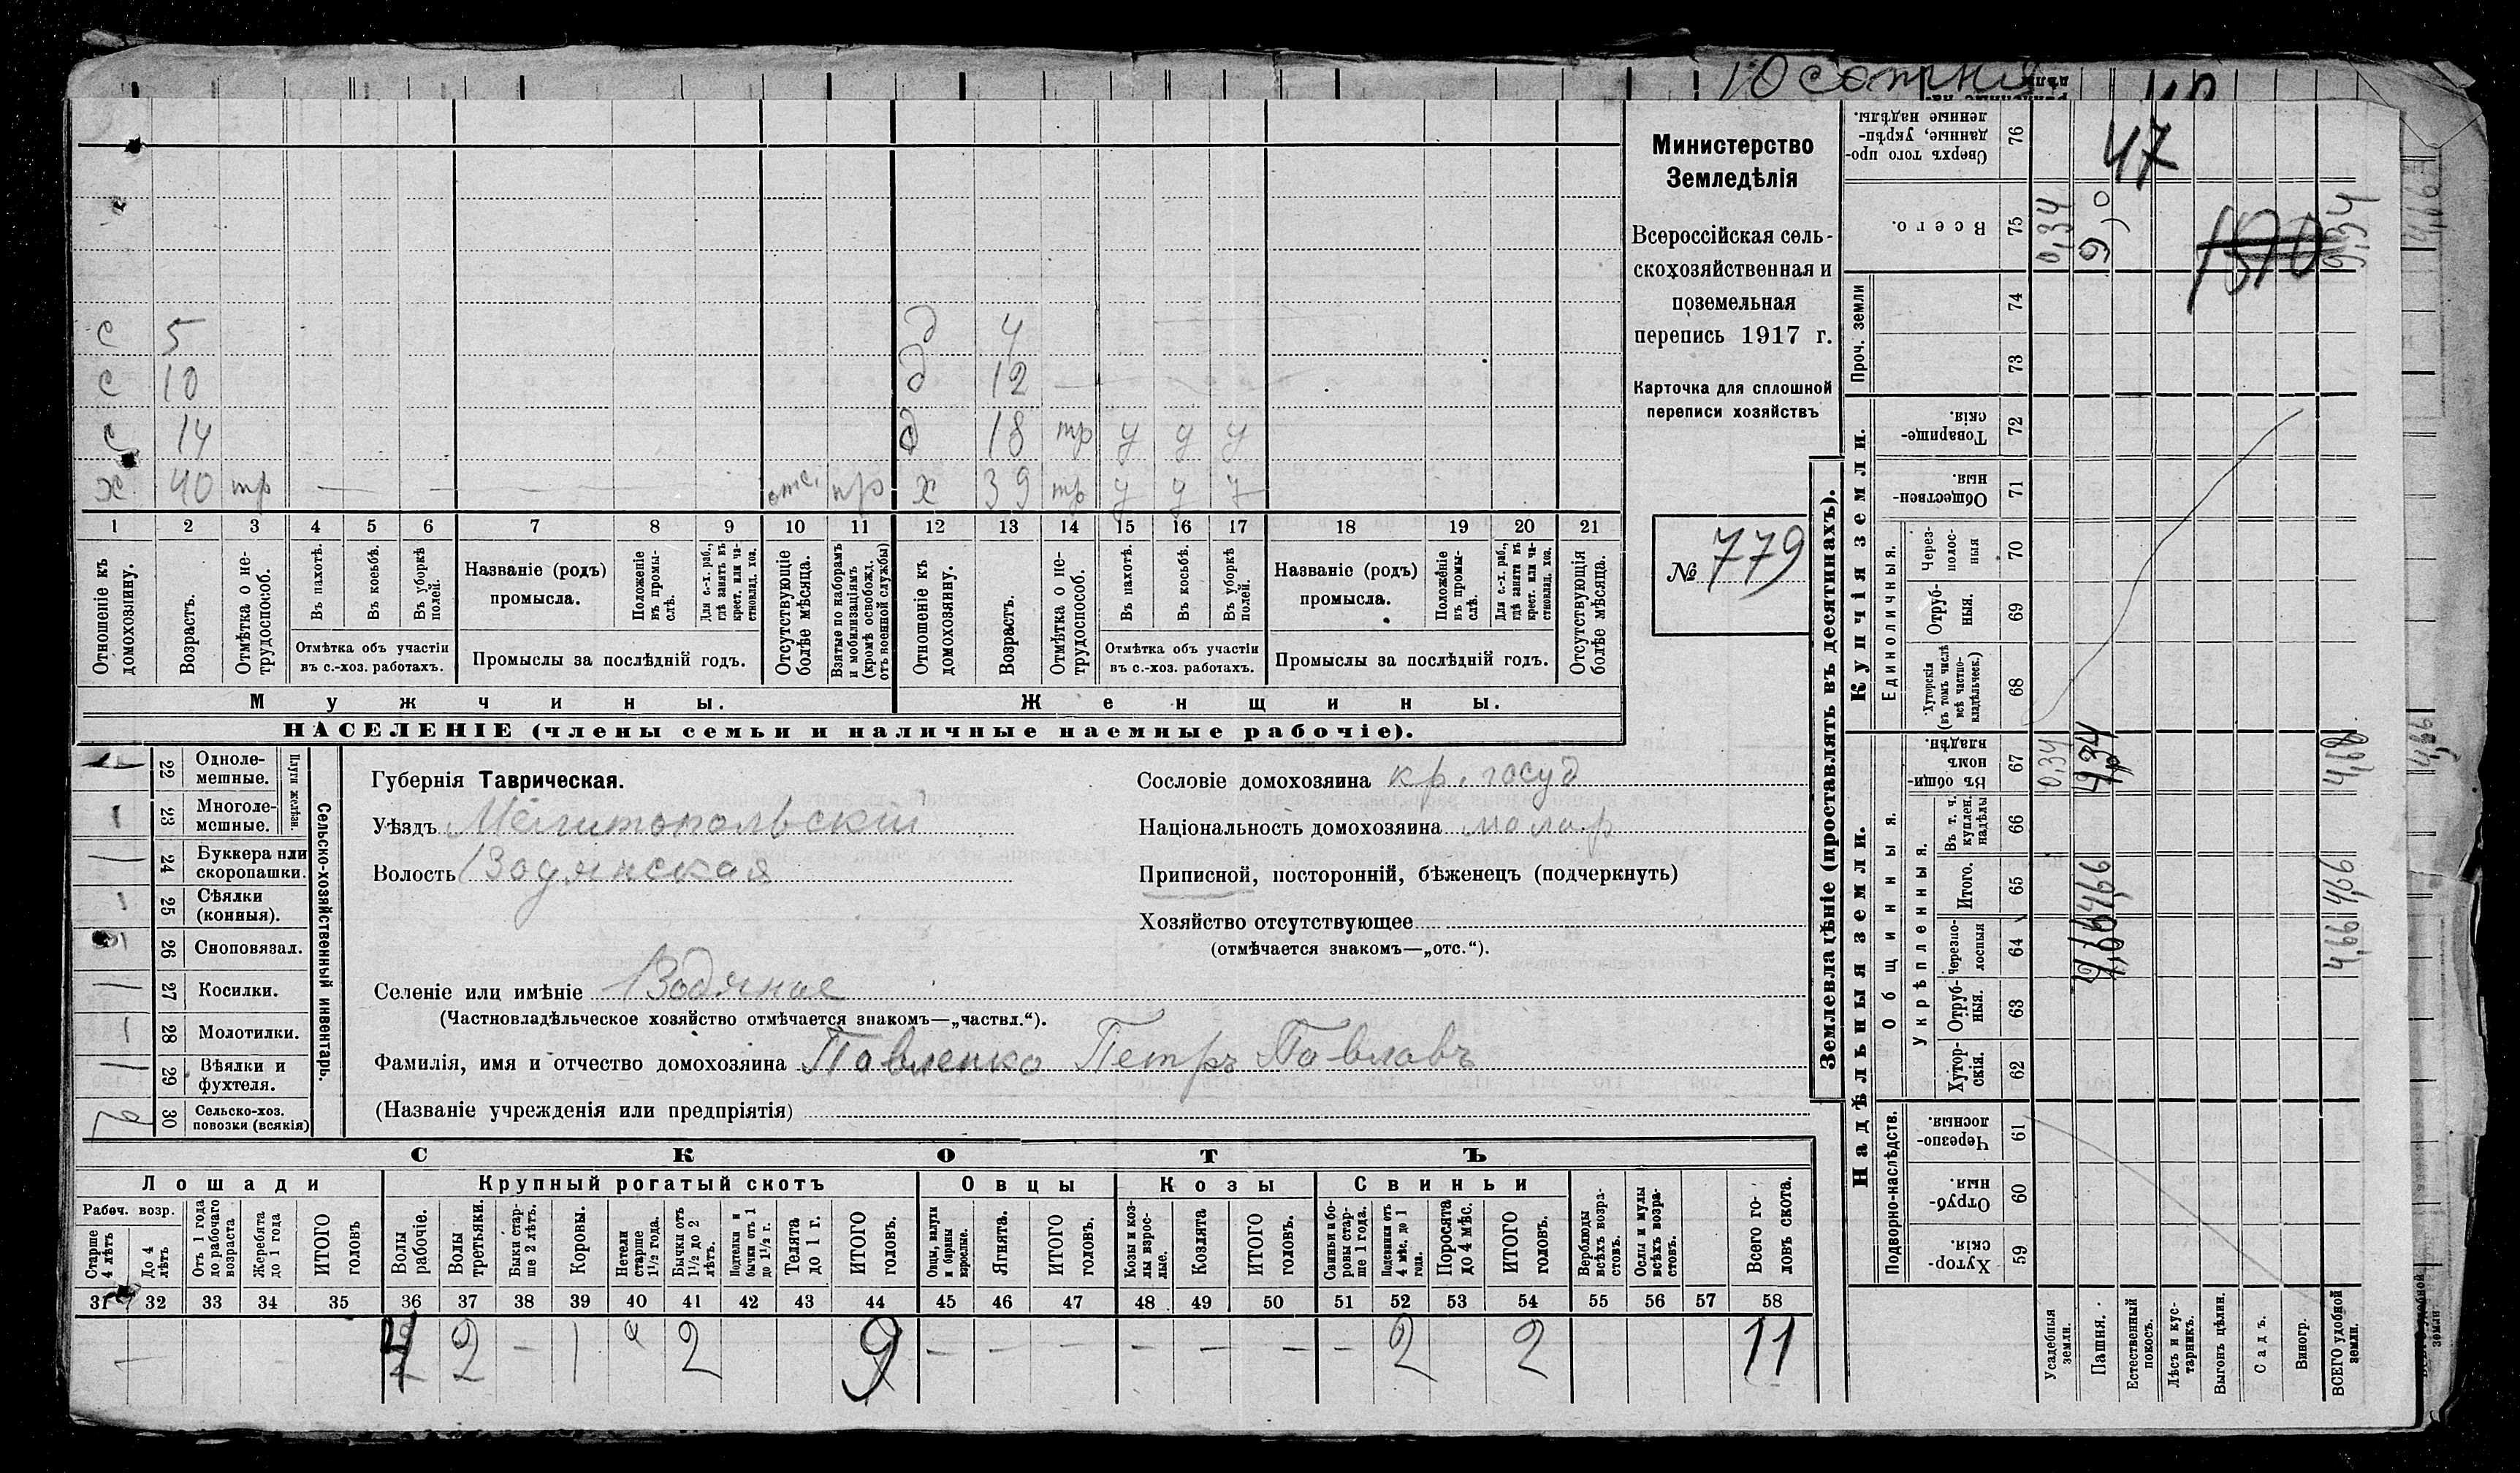 10 сотня
Министерство
Земледѣлія
Всероссійская сель-
скохозяйственная и
поземельная
перепись 1917 г.
Карточка для сплошной
переписи хозяйствъ
№ 779
с 5 д 4
с 10 д 12
с 14 д 18 тр у у у
х 40 тр — — — — отс. пр х 39 тр у у у
1 2 3 4 5 6 7 8 9 10 11 12 13 14 15 16 17 18 19 20 21
Отношеніе къ домохозяину.
Возрастъ.
Отмѣтка о не-трудоспособ.
Въ пахотѣ.
Въ косьбѣ.
Въ уборкѣ полей.
Отмѣтка объ участіи
въ с.-хоз. работахъ.
Названіе (родъ)
промысла.
Положеніе въ промы-слѣ.
Для с.-х. раб., гдѣ занятъ въ крест. или ча-стновлад. хоз.
Промыслы за послѣдній годъ.
Отсутствующіе болѣе мѣсяца.
Взятые по наборамъ и мобилизаціямъ (кромѣ освобожд. отъ военной службы)
Отношеніе къ домохозяину.
Возрастъ.
Отмѣтка о не-трудоспособ.
Въ пахотѣ.
Въ косьбѣ.
Въ уборкѣ полей.
Отмѣтка объ участіи
въ с.-хоз. работахъ.
Названіе (родъ)
промысла.
Положеніе въ промы-слѣ.
Для с.-х. раб., гдѣ занята въ крест. или ча-стновлад. хоз.
Промыслы за послѣдній годъ.
Отсутствующія болѣе мѣсяца.
Мужчины. Женщины.
НАСЕЛЕНІЕ (члены семьи и наличные наемные рабочіе).
Сельско-хозяйственный инвентарь.
Плуги желѣзн.
22 Одноле-мешные.
1 23 Многоле-мешные.
— 24 Буккера или скоропашки.
1 25 Сѣялки (конныя).
26 Сноповязал.
— 27 Косилки.
1 28 Молотилки.
— 29 Вѣялки и фухтеля.
2 30 Сельско-хоз. повозки (всякія)
Губернія Таврическая.
Уѣздъ Мелитопольскій
Волость Водянская
Сословіе домохозяина кр. госуд
Національность домохозяина малор
Приписной, посторонній, бѣженецъ (подчеркнуть)
Хозяйство отсутствующее
(отмѣчается знакомъ—„отс.“).
Селеніе или имѣніе Водяное
(Частновладѣльческое хозяйство отмѣчается знакомъ—„частвл.“).
Фамилія, имя и отчество домохозяина Павленко Петръ Павловъ
(Названіе учрежденія или предпріятія)
СКОТЪ
Лошади Крупный рогатый скотъ Овцы Козы Свиньи
Рабоч. возр.
Старше 4 лѣтъ
До 4 лѣтъ
Отъ 1 года до рабочаго возраста
Жеребята до 1 года
ИТОГО головъ
Волы рабочіе.
Волы третьяки.
Быки стар-ше 2 лѣтъ.
Коровы.
Нетели старше 1½ года.
Бычки отъ 1½ до 2 лѣтъ.
Подтелки и бычки отъ 1 до 1½ г.
Телята до 1 г.
ИТОГО головъ.
Овцы, валухи и бараны взрослые.
Ягнята.
ИТОГО головъ.
Козы и коз-лы взрос-лые.
Козлята
ИТОГО головъ.
Свиньи и бо-ровы стар-ше 1 года.
Подсвинки отъ 4 мѣс. до 1 года.
Поросята до 4 мѣс.
ИТОГО головъ.
Верблюды всѣхъ возра-стовъ.
Ослы и мулы всѣхъ возра-стовъ.
Всего го-ловъ скота.
31 32 33 34 35 36 37 38 39 40 41 42 43 44 45 46 47 48 49 50 51 52 53 54 55 56 57 58
— 2 — 1 2 9 — — — — — — — 2 2 11
Землевладѣніе (проставлять въ десятинахъ).
Надѣльныя земли. Купчія земли. Проч. земли
Подворно-наслѣдств.
Общинныя.
Укрѣпленныя.
Единоличныя.
59 Хутор-скія.
60 Отруб-ныя.
61 Черезпо-лосныя.
62 Хутор-скія.
63 Отруб-ныя.
64 Черезпо-лосныя
65 Итого.
66 Въ т. ч. куплен. надѣлы
67 Въ общи-номъ владѣн.
68 Хуторскія (въ томъ числѣ всѣ частно-владѣльческ.)
69 Отруб-ныя.
70 Через-полос-ныя
71 Обществен-ныя.
72 Товарище-скія.
73
74
75 Всего.
76 Сверхъ того про-данные, укрѣп-ленные надѣлы.
Усадебныя земли. 0,34 0,34
Пашня. 4,66 4,34 9,0
Естественный покосъ.
Лѣсъ и кус-тарникъ.
Выгонъ цѣлин.
Садъ.
Виногр.
ВСЕГО удобной земли. 4,66 4,66 4,68 9,34
47